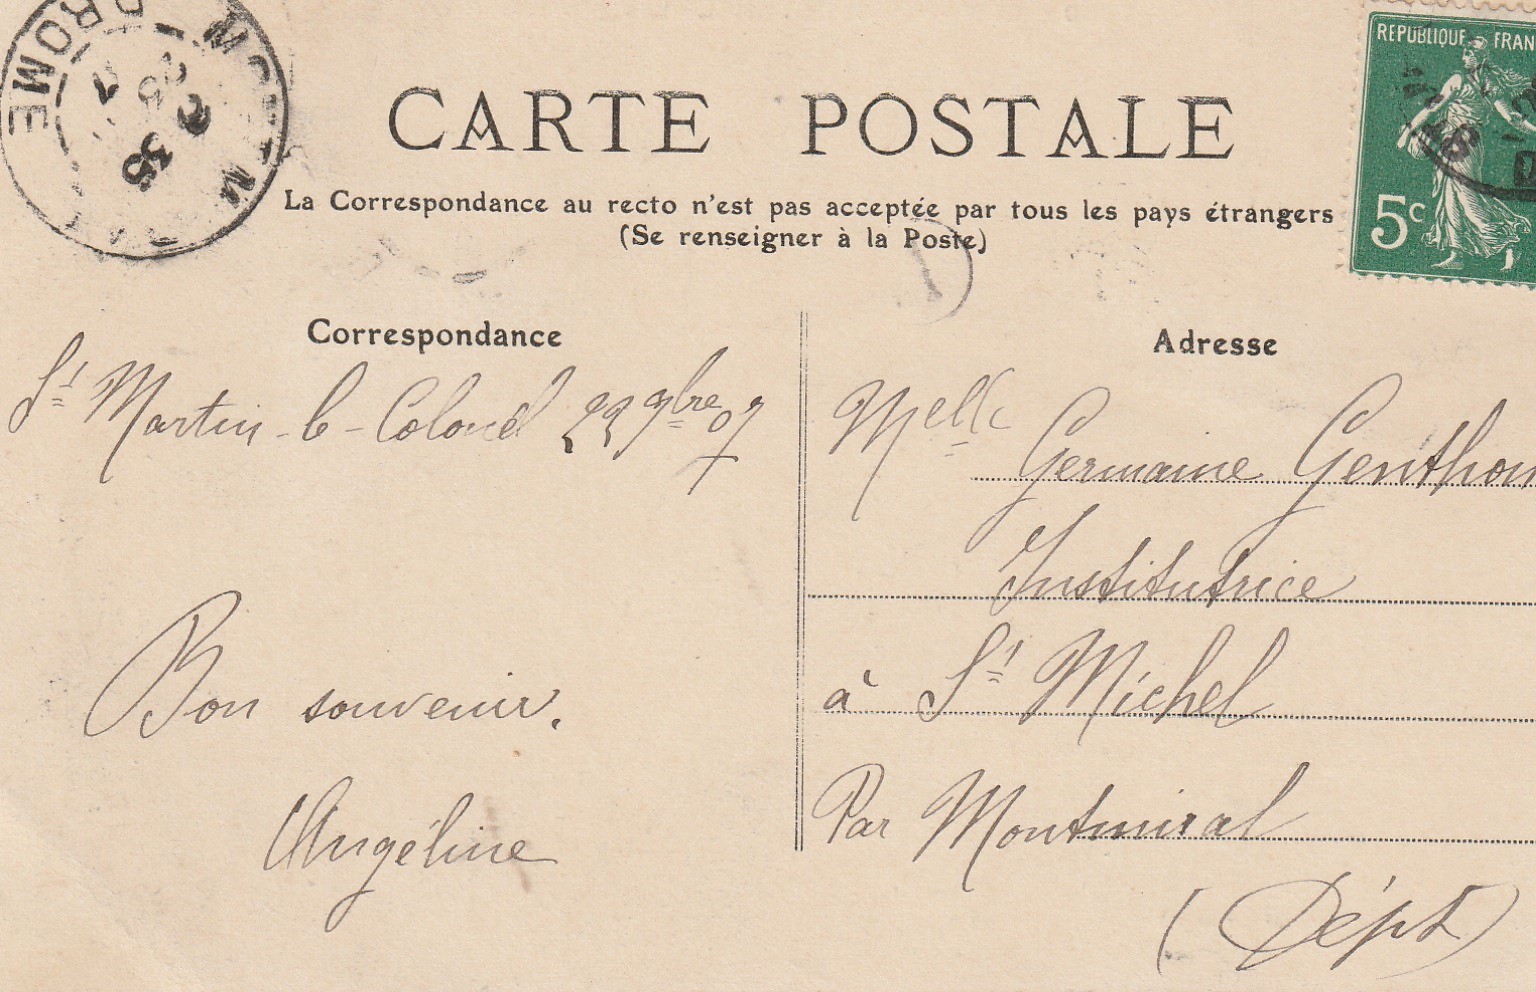 CARTE POSTALE
La Correspondance au recto n'est pas acceptée par tous les pays étrangers
(Se renseigner à la Poste)
REPUBLIQUE FRAN
5c
DROME
Correspondance
Adresse
St Martin-le-Colonel 22 9bre 07
Bon souvenir.
Angéline
Melle Germaine Genthon
Institutrice
à St Michel
Par Montmiral
(Dépt)